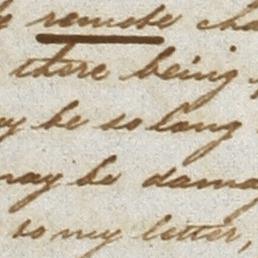 remote cha
there being
be so long
may be dama
to my letter,